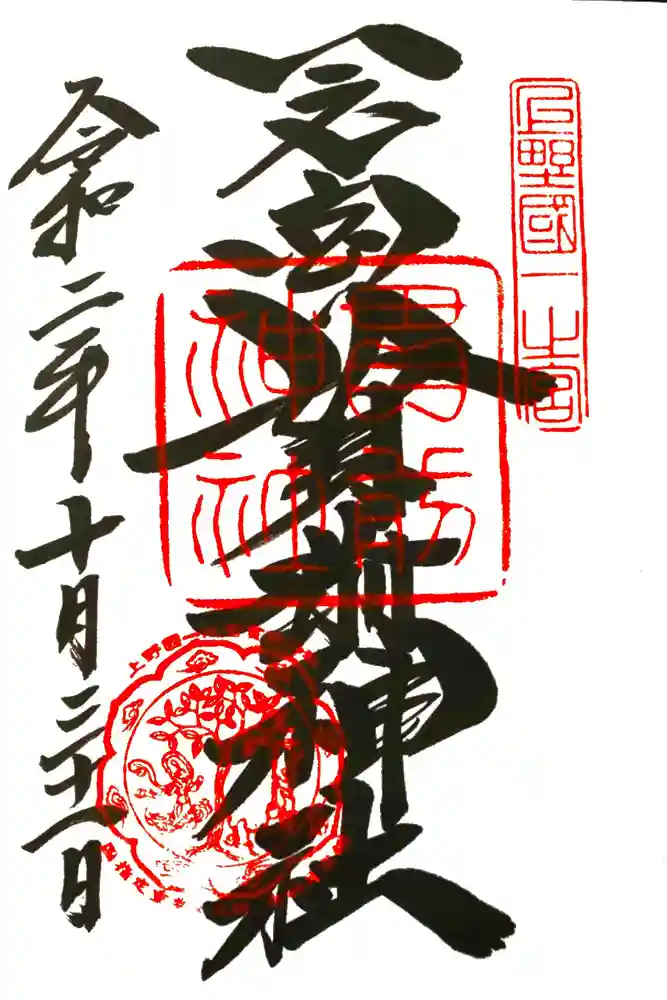 上野國一之宮
一之宮貫前神社
貫前
神社
令和二年十月三十一日